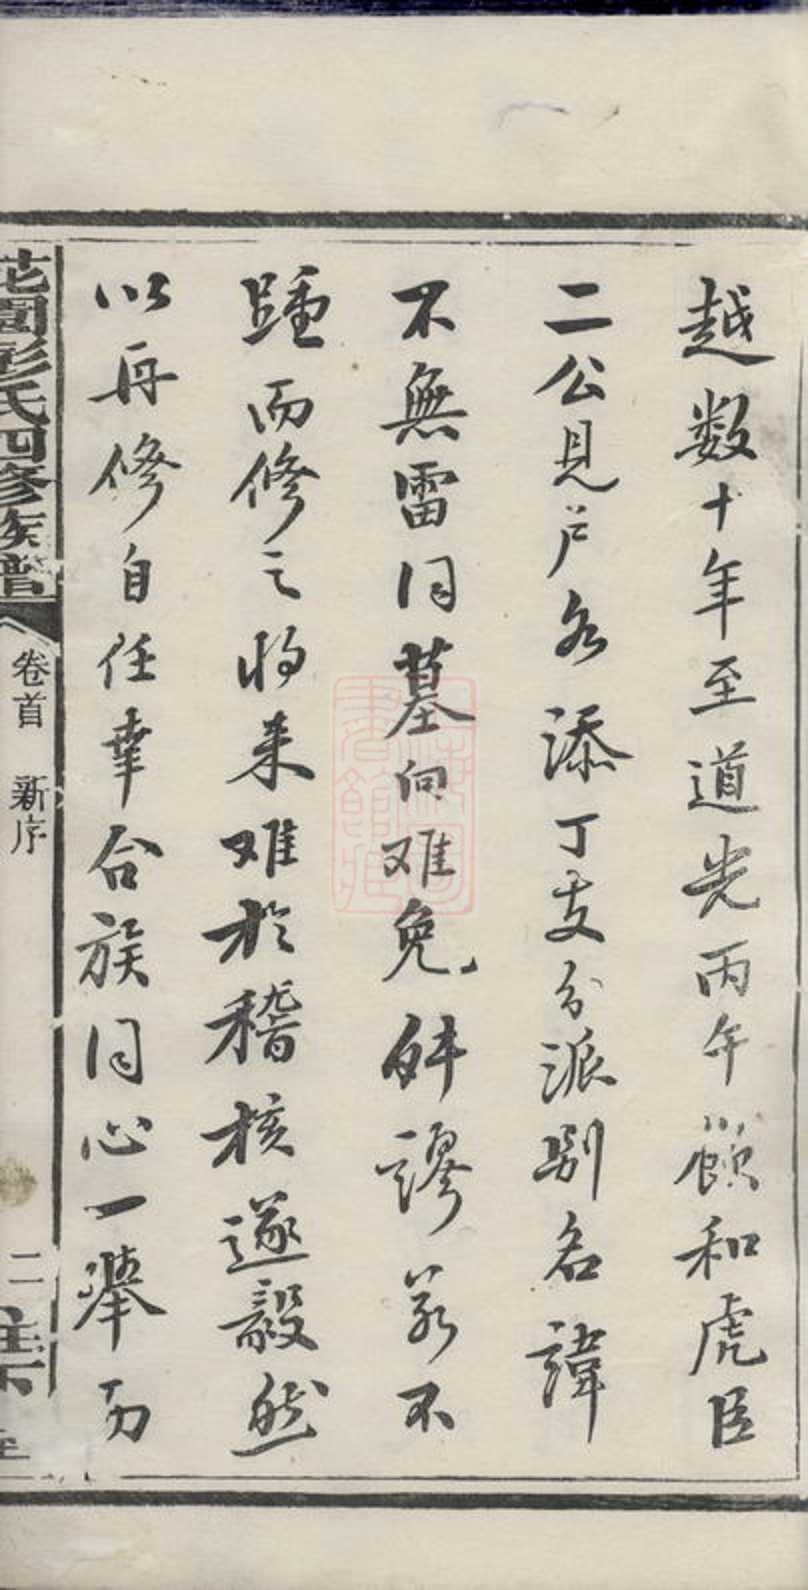 越数十年至道光丙午顏和虎臣
二公見户各添丁支分派别名諱
不無雷同墓向难免舛謬若不
踵而修之将来难於稽核遂毅然
以再修自任幸合族同心一舉而
花園彭氏四修族譜
卷首 新序
二